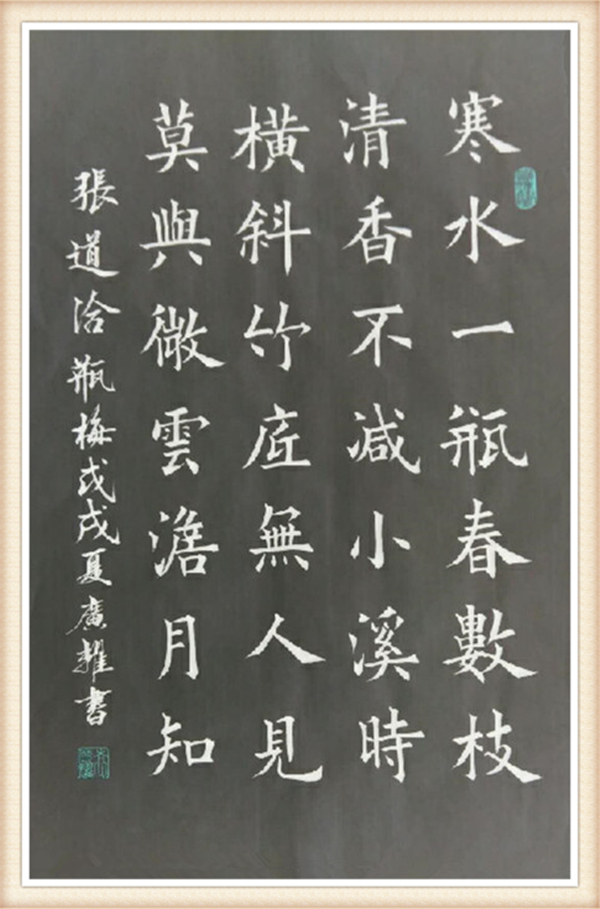 寒水一瓶春數枝
清香不減小溪時
橫斜竹底無人見
莫與微雲澹月知
張道洽瓶梅戊戌夏廣耀書